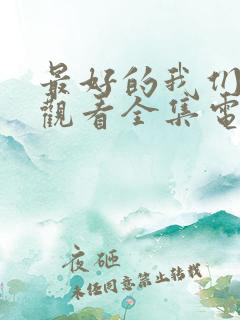 最好的我们
觀看全集電
夜砸
未经同意禁止转载